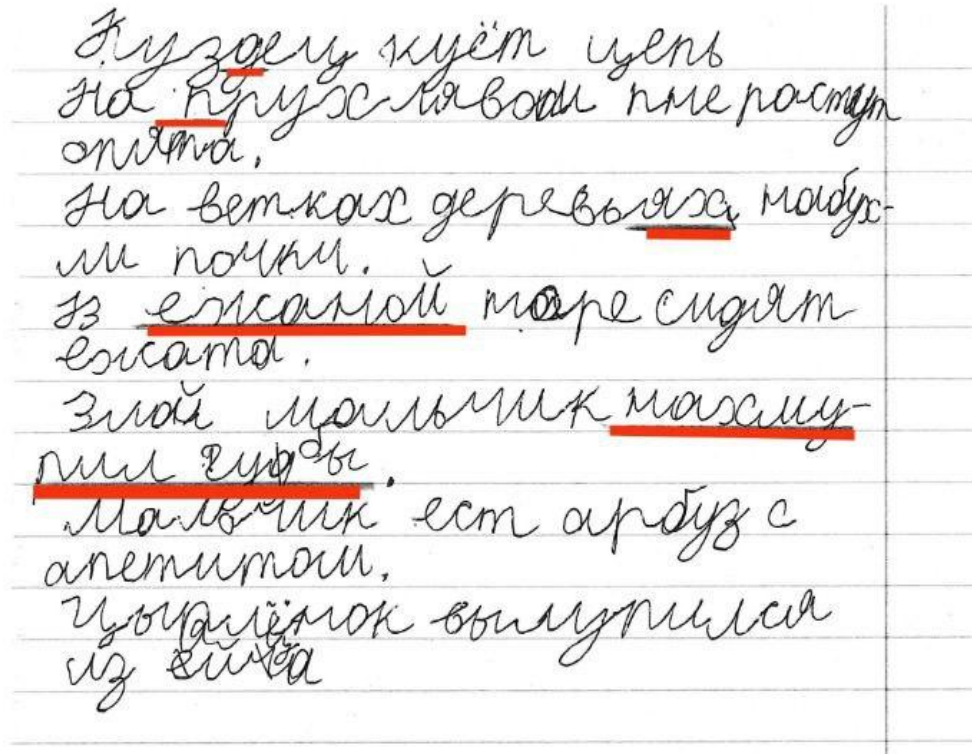 Куздец куёт цепь
На прухлявом пне растут
опята.
На ветках деревьях набух-
ли почки.
В ежаной норе сидят
ежата.
Злой мальчик нахлу-
пил губы.
Мальчик ест арбуз с
апетитом.
Цырлёнок вылупился
из